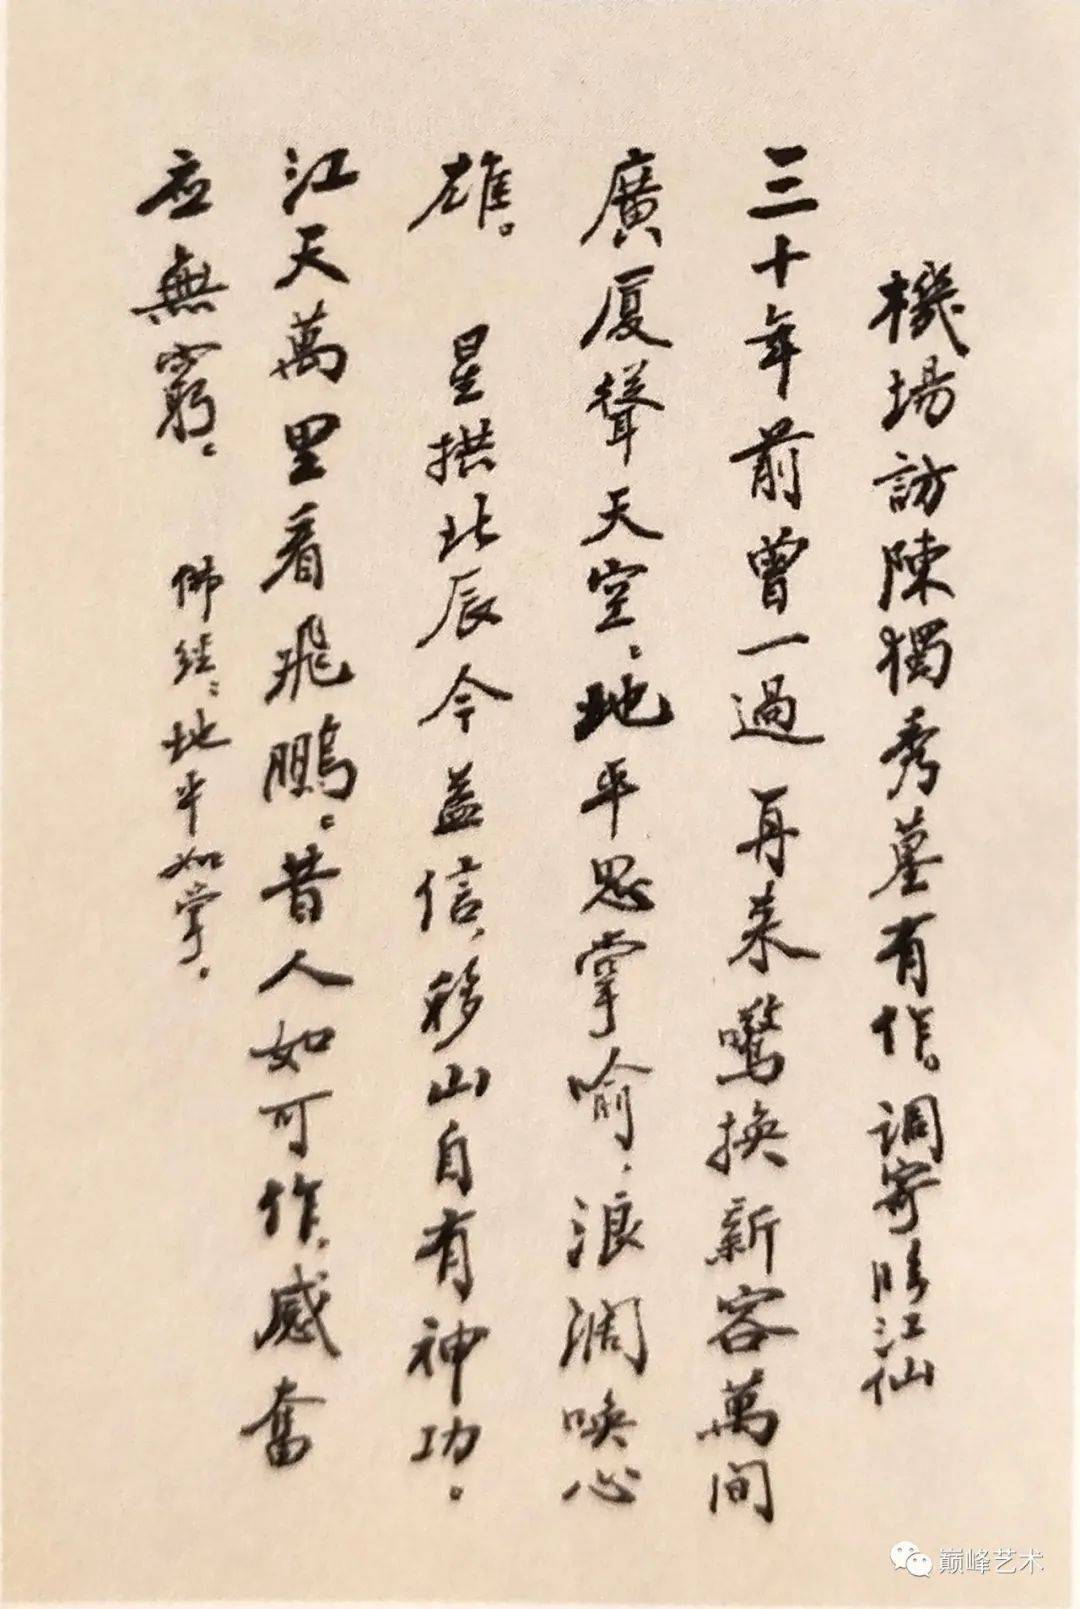 機場訪陳獨秀墓有作。调寄临江仙
三十年前曾一過再来驚换新容萬间
廣厦聳天空、地平思掌喻、浪濶唤心
雄。星拱北辰今益信、移山自有神功。
江天萬里看飛鵬、昔人如可作、感奮
应無窮。佛经、地平如掌。
巅峰艺术